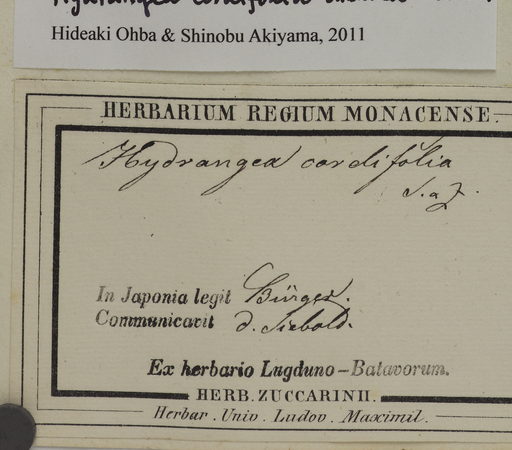 Hydrangea cordifolia
Hideaki Ohba & Shinobu Akiyama, 2011
HERBARIUM REGIUM MONACENSE.
Hydrangea cordifolia
S. a Z.
In Japonia legit Bürger.
Communicavit d. Siebold.
Ex herbario Lugduno–Batavorum.
HERB. ZUCCARINII.
Herbar. Univ. Ludov. Maximil.